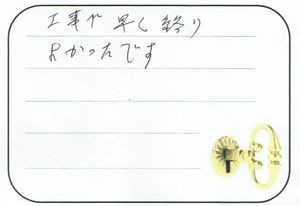 工事が早く終り
よかったです